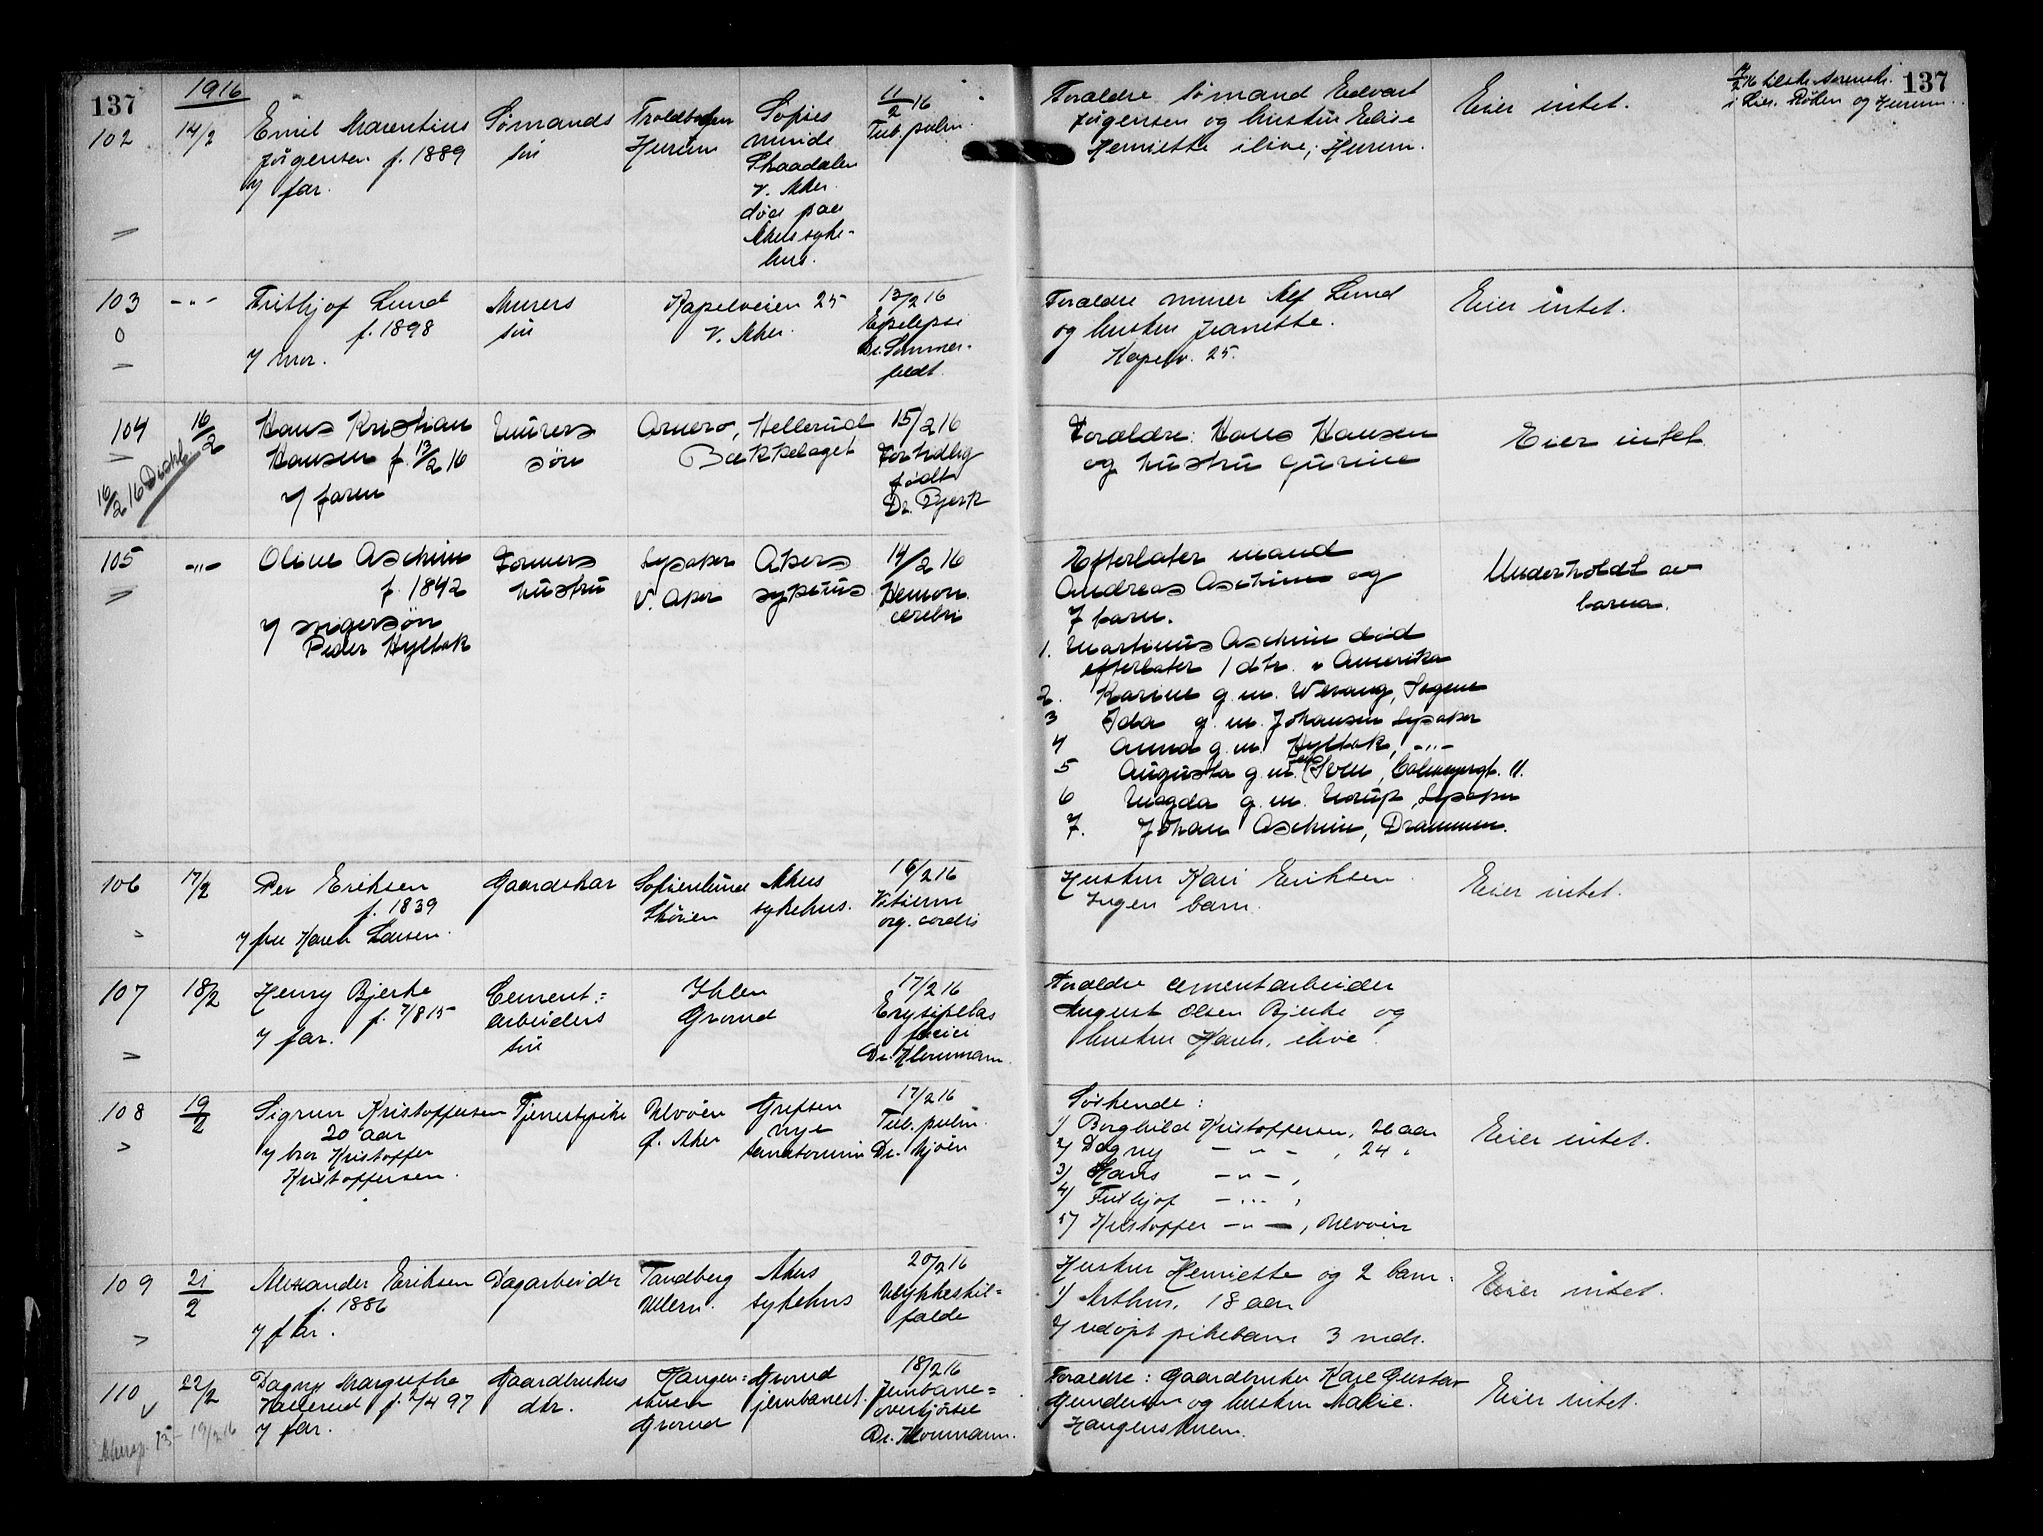 137
1916
102
14/2
Emil Marentius
Jørgensen f. 1889
y far.
Sømands
søn
Hurum
Sofies
minde
Skaadalen
V. Aker
død paa
Akers syke-
hus.
11/2 16
Tub. pulm.
Foraldre sømand Edvart
Jørgensen og hustru Elise
Henriette ilive, Hurum.
Eier intet.
137
i Lier, Røken og Hurum.
103
- " -
Frithjof Lund
f. 1898
y mor.
Murers
søn
Kapelveien 25
V. Aker.
13/2 16
Epilepsi
Dr. Sømmer-
feldt
Foraldre murer Alf Lund
og hustru Jeanette.
Kapelv. 25.
Eier intet.
104
16/2
16/2 16
Hans Kristian
Hansen f. 13/2 16
y faren
Murers
søn
Arnero, Hellerud
Bækkelaget
15/2 16
For tidlig
født
Dr. Bjerk
Forældre: Hans Hansen
og hustru Gurine
Eier intet
105
- " -
Oline Aschim
f. 1842
y svigersøn
Peder Hyltak
Formers
hustru
Lysaker
V. Aker
Akers
sykehus
14/2 16
Hemorr.
cerebri
Efterlater mand
Andreas Aschim og
7 barn.
1. Martinus Aschim død
efterlater 1 dtr. i Amerika
2. Karine g. m. Werang, Sagene
3 Ida g. m. Johansen Lysaker
4 Anna g. m. Hyltak, - " -
5 Augusta g. m. Sven, Calmeyergt. 11.
6 Magda g. m. Lysaker
7. Johan Aschim, Drammen.
Underholdt av
barna.
106
17/2
Per Eriksen
f. 1839
y fru Karen Larsen.
Gaardskar
Sofienlund
Skøien
Akers
sykehus.
16/2 16
Vitium
org. cordis
Hustru Kari Eriksen
Ingen barn.
Eier intet.
107
18/2
Henry Bjerke
f. 7/8 15
y far.
Cement=
arbeiders
søn
Ihlen
Grorud
17/2 16
Erysipelas
faciei
Dr. Mounmann.
Foraldre cementarbeider
August Olsen Bjerke og
hustru Karen, ilive.
108
19/2
Sigrun Kristoffersen
20 aar
y bror Kristoffer
Kristoffersen.
Tjenestepike
Ulvøen
Ø. Aker
Grefsen
nye
sanatorium
17/2 16
Tub. pulm.
Dr. Mjøen
Søskende:
1) Borghild Kristoffersen, 26 aar
2) Dagny - " - , 24 "
3) Hans - " - ,
4) Frithjof - " - ,
5) Kristoffer - " - , Ulvøen
Eier intet.
109
21/2
Alexander Eriksen
f. 1886
y far.
Dagarbeider
Tandberg
Ullern.
Akers
sykehus
20/2 16
Ulykkestil=
falde
Hustru Henriette og 2 barn.
1) Arthur, 18 aar
2) udøpt pikebarn 3 mdr.
Eier intet.
110
22/2
Dagny Margrethe
Hallerud f. 2/4 97
y far.
Gaardbrukers
dtr.
Haugen=
stuen
Grorud
Grorud
jernbanest.
18/2 16
Jernbane=
overkjørsel
Dr. Mounmann.
Foraldre: Gaardbruker Karl Gustav
Gundersen og hustru Malie.
Haugenstuen.
Eier intet.
19/2 16